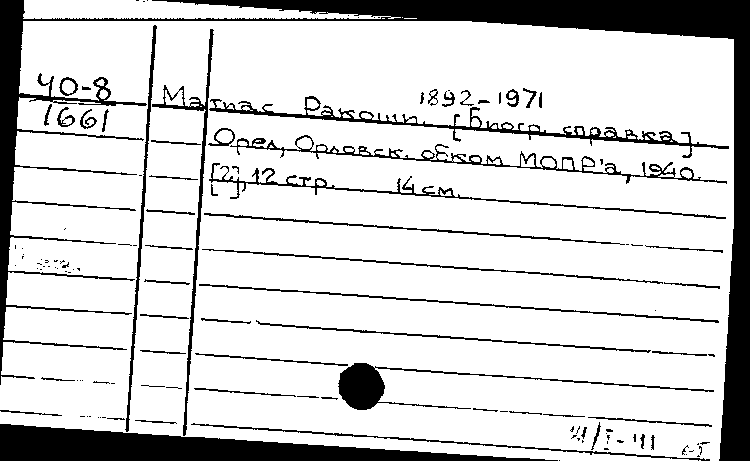 40-8
1661
1892-1971
Матиас Ракоши. [Биогр. справка]
Орел, Орловск. обком МОПР'а, 1940.
[2], 12 стр. 14 см.
/I-41